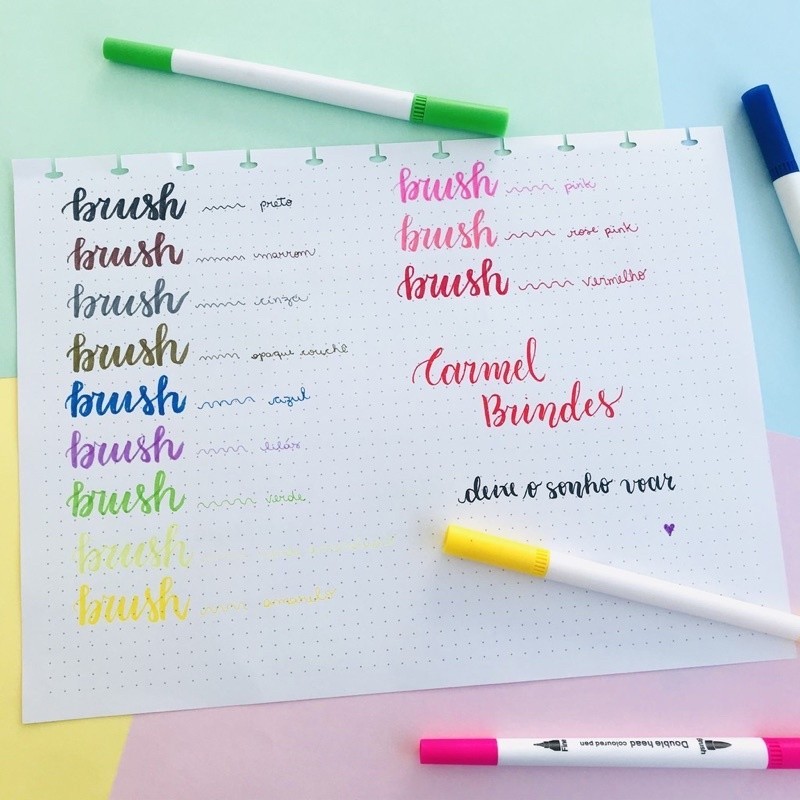 brush preto
brush marrom
brush cinza
brush opaque couchê
brush azul
brush lilás
brush verde
brush
brush amarelo
brush pink
brush rose pink
brush vermelho
Carmel
Brindes
deixe o sonho voar
Fine Double head coloured pen Brush